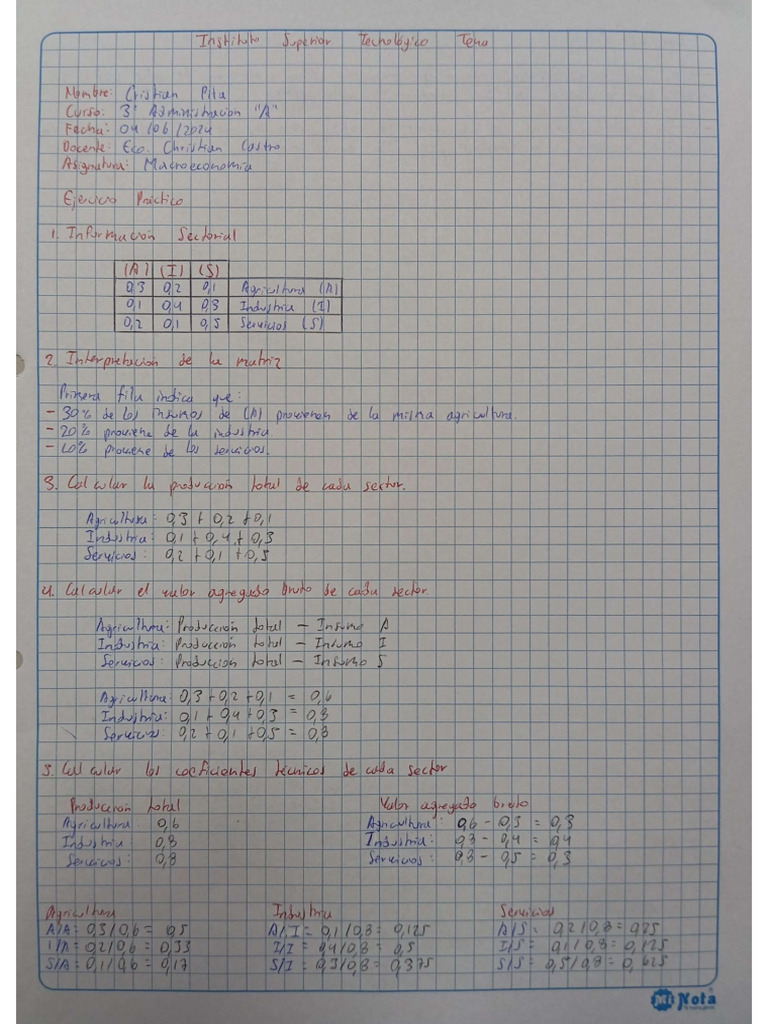 Instituto Superior Tecnológico Tena
Nombre: Cristian Pita
Curso: 3º Administracion "A"
Fecha: 04/06/2024
Docente: Eco. Christian Castro
Asignatura: Macroeconomía
Ejercicio Práctico
1. Información Sectorial
(A) (I) (S)
0,3 0,2 0,1 Agricultura (A)
0,1 0,4 0,3 Industria (I)
0,2 0,1 0,5 Servicios (S)
2. Interpretación de la matriz
Primera fila indica que:
- 30% de los insumos de (A) provienen de la misma agricultura.
- 20% proviene de la industria.
- 10% proviene de los servicios.
3. Calcular la producción total de cada sector.
Agricultura: 0,3 + 0,2 + 0,1
Industria: 0,1 + 0,4 + 0,3
Servicios: 0,2 + 0,1 + 0,5
4. Calcular el valor agregado bruto de cada sector.
Agricultura: Producción total - Insumo A
Industria: Producción total - Insumo I
Servicios: Producción total - Insumo S
Agricultura: 0,3 + 0,2 + 0,1 = 0,6
Industria: 0,1 + 0,4 + 0,3 = 0,8
Servicios: 0,2 + 0,1 + 0,5 = 0,8
5. Calcular los coeficientes técnicos de cada sector
Producción total Valor agregado bruto
Agricultura 0,6 Agricultura: 0,6 - 0,3 = 0,3
Industria 0,8 Industria: 0,8 - 0,4 = 0,4
Servicios: 0,8 Servicios: 0,8 - 0,5 = 0,3
Agricultura Industria Servicios
A/A = 0,3/0,6 = 0,5 A/I = 0,1/0,8 = 0,125 A/S = 0,2/0,8 = 0,25
I/A = 0,2/0,6 = 0,33 I/I = 0,4/0,8 = 0,5 I/S = 0,1/0,8 = 0,125
S/A = 0,1/0,6 = 0,17 S/I = 0,3/0,8 = 0,375 S/S = 0,5/0,8 = 0,625
Mi Nota